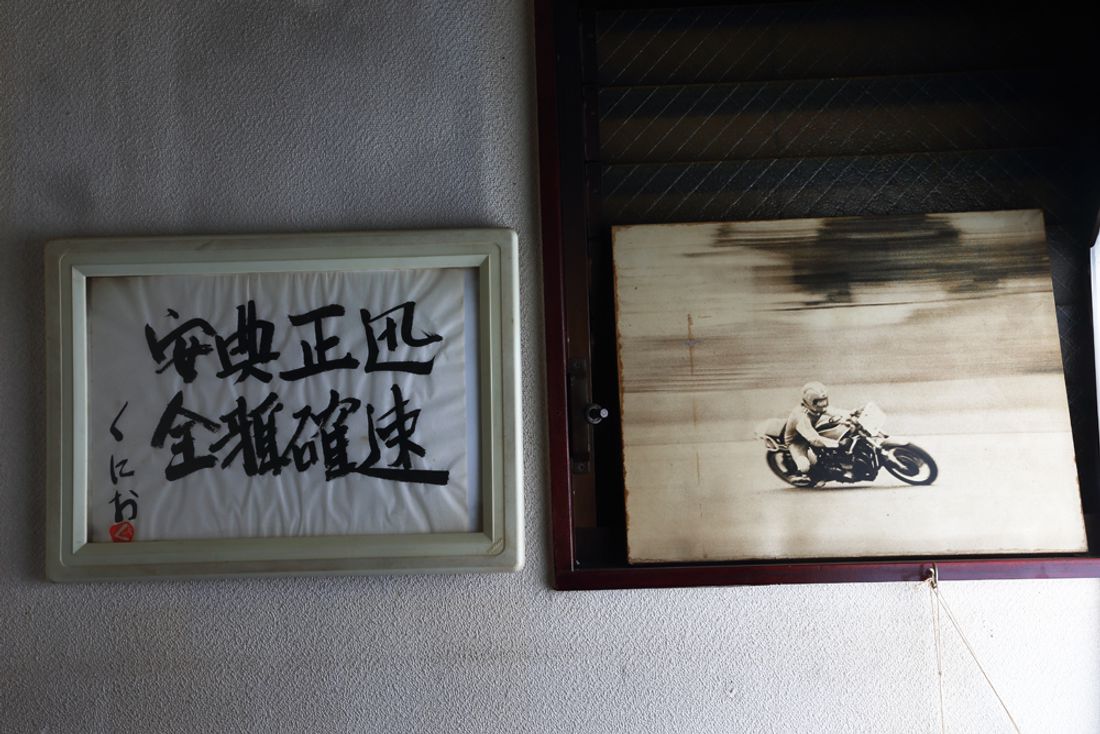 迅速
正確
典雅
安全
くにお
く